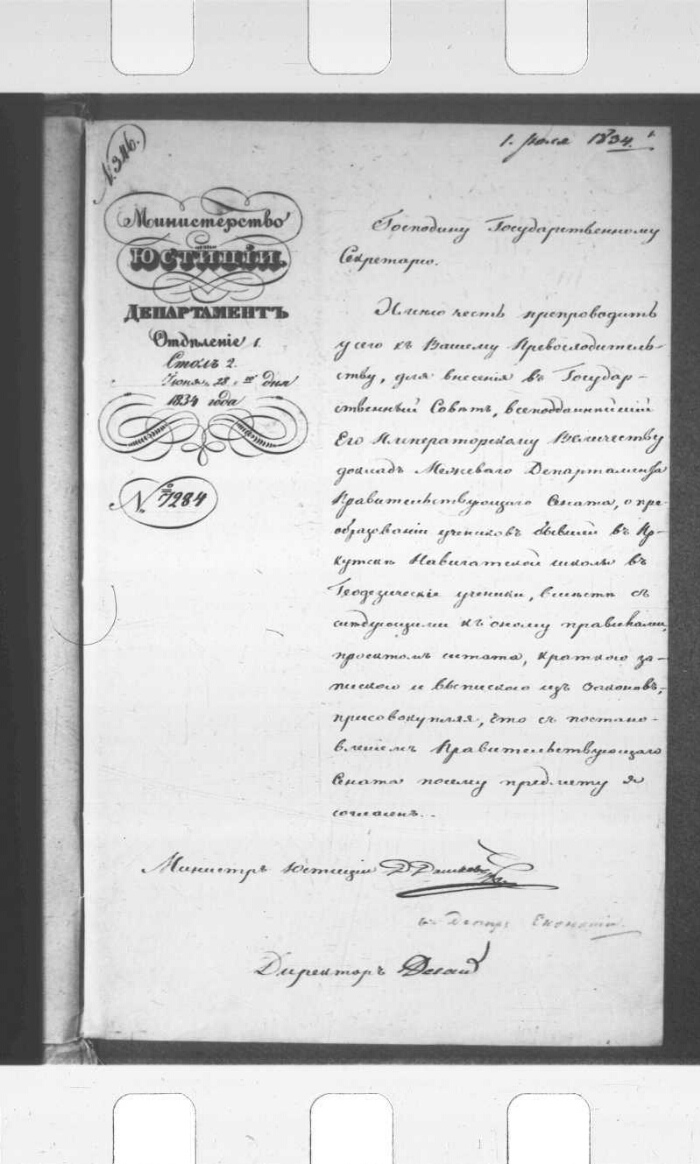 № 346.
1. Июля 1834.
Министерство
ЮСТИЦІИ.
ДЕПАРТАМЕНТЪ
Отдѣленіе 1.
Столъ 2.
Іюня 28 дня
1834 года
№ 7284
Господину Государственному
Секретарю.
Имѣю честь препроводить
у сего къ Вашему Превосходитель-
ству, для внесенія въ Государ-
ственный Совѣтъ, всеподданнѣйшій
Его Императорскому Величеству
докладъ Межеваго Департамента
Правительствующаго Сената, о пре-
образованіи учениковъ бывшей въ Ир-
кутскѣ Навигатской школы въ
Геодезическіе ученики, вмѣстѣ съ
слѣдующими къ оному правилами,
проектомъ штата, краткою за-
пискою и выпискою изъ законовъ,
присовокупляя, что съ постано-
вленіемъ Правительствующаго
Сената посему предмету я
согласенъ.
Министръ Юстиціи Д. Дашковъ
въ Депар. Економіи.
Директоръ Дегай